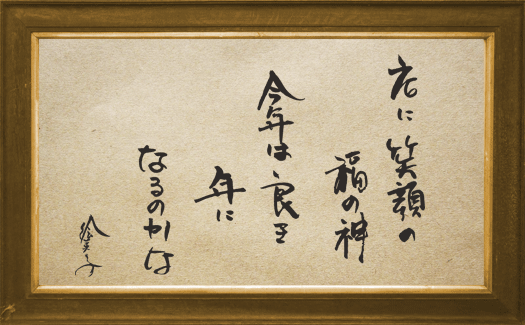 店に笑顔の
福の神
今年は良き
年に
なるのかな